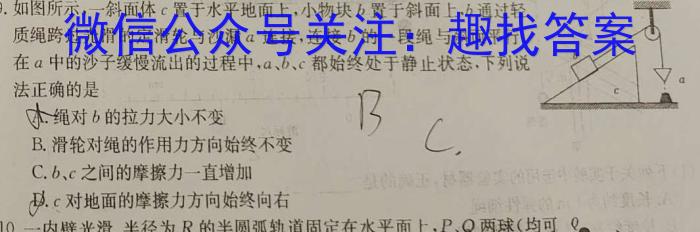 9. 如图所示,一斜面体 c 置于水平地面上,小物块 b 置于斜面上,b 通过轻
质绳跨过光滑的定滑轮与沙漏 a 连接,连接 b 的一段绳与斜面平行
微信公众号关注:趣找答案
在 a 中的沙子缓慢流出的过程中,a、b、c 都始终处于静止状态.下列说
法正确的是
A. 绳对 b 的拉力大小不变
B. 滑轮对绳的作用力方向始终不变
C. b、c 之间的摩擦力一直增加
D. c 对地面的摩擦力方向始终向右
B
C.
a
c
10. 一内壁光滑、半径为 R 的半圆弧轨道固定在水平面上,P、Q 两球(均可
Q